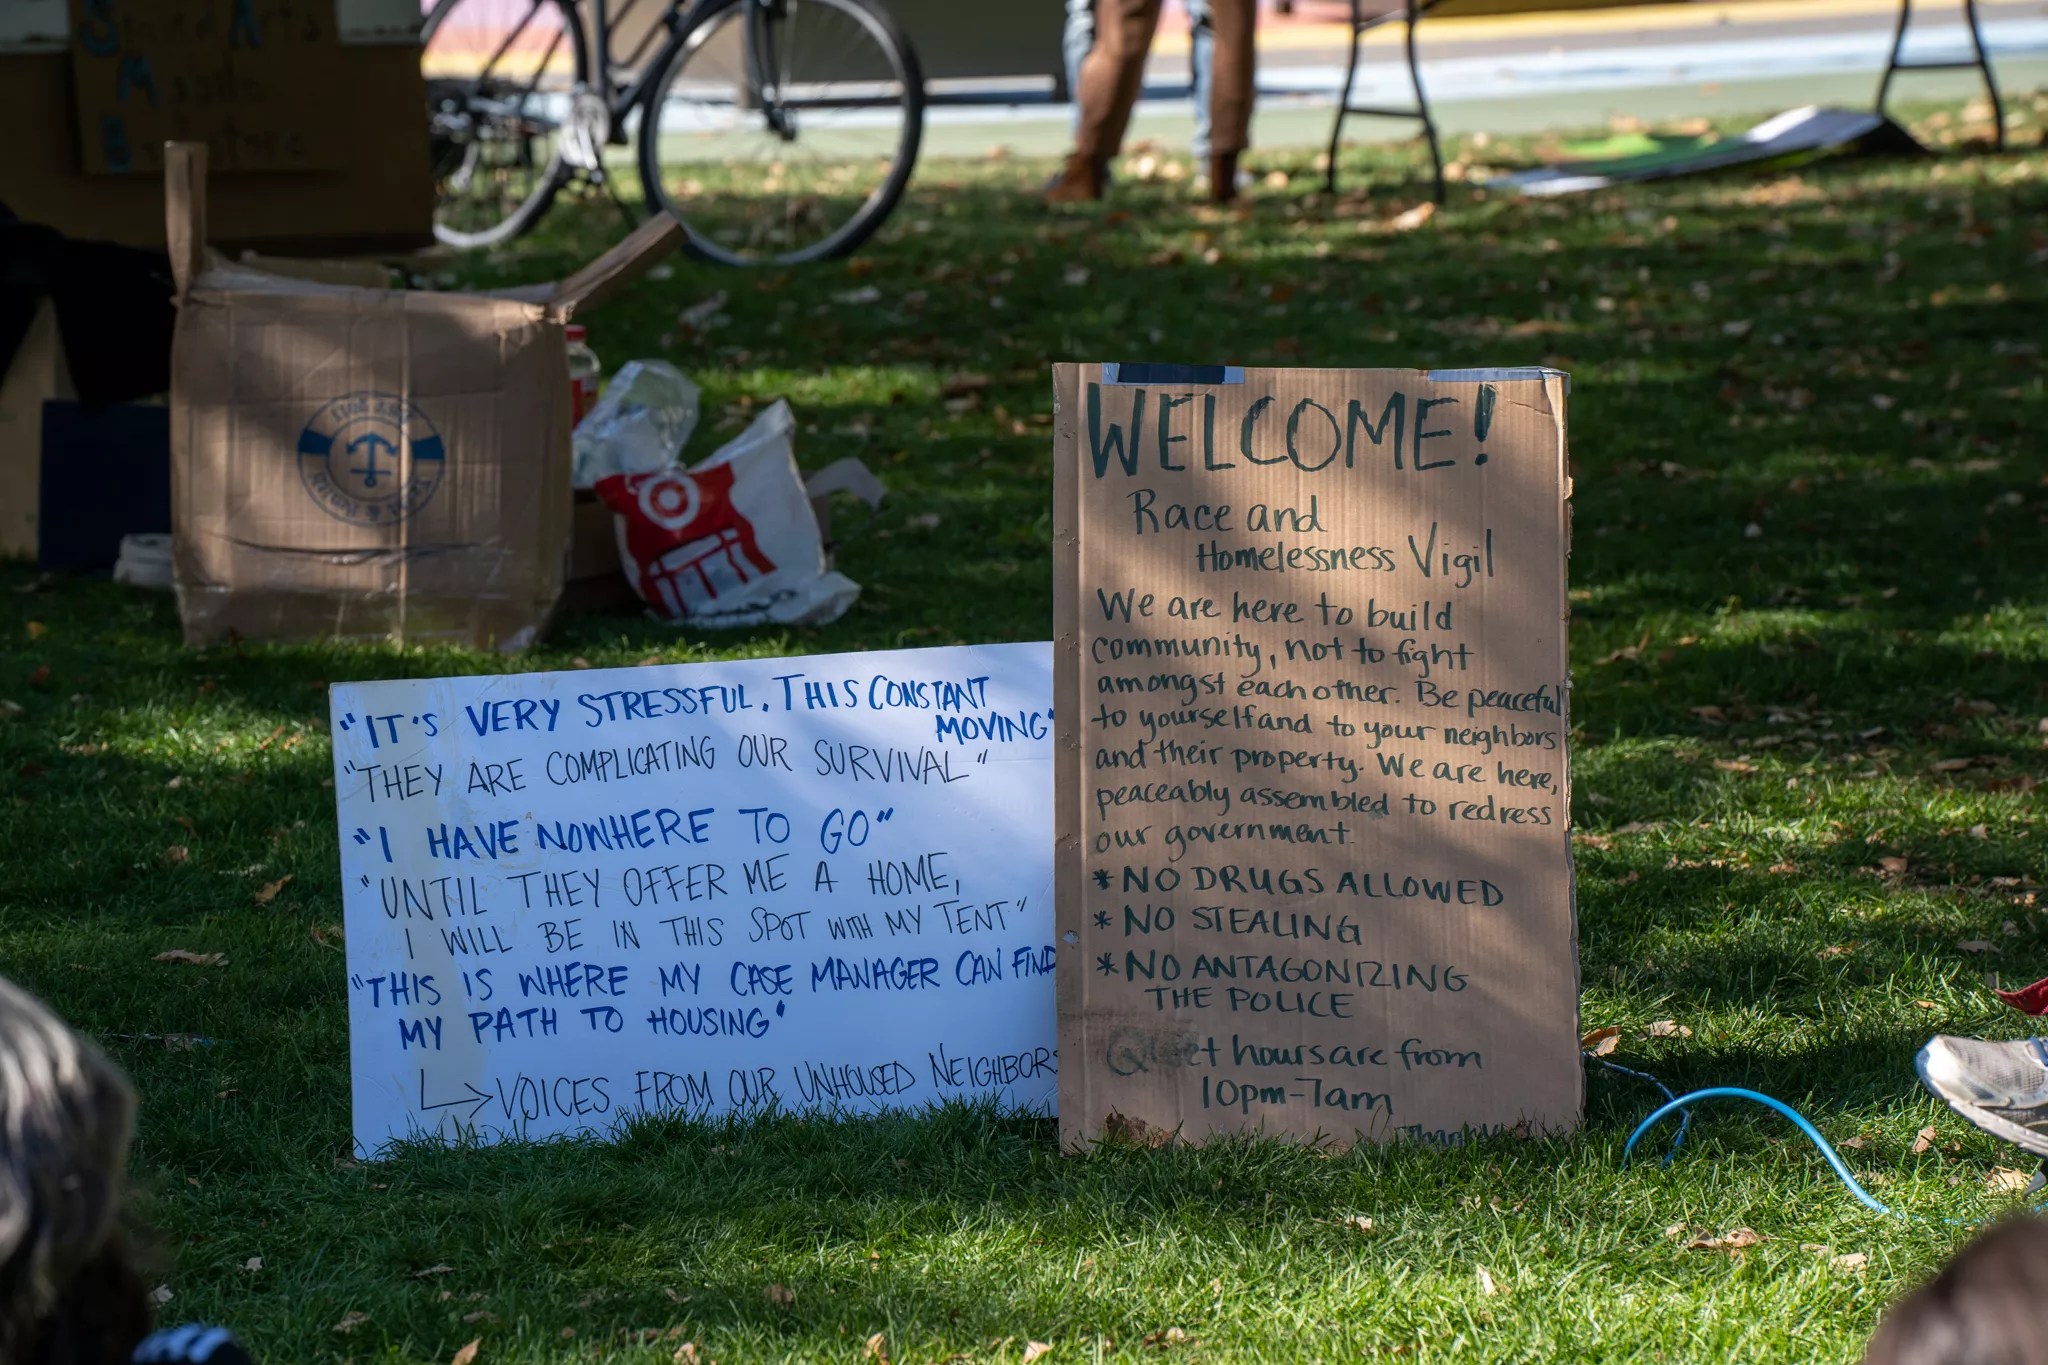 "IT'S VERY STRESSFUL. THIS CONSTANT
MOVING"
"THEY ARE COMPLICATING OUR SURVIVAL"
"I HAVE NOWHERE TO GO"
"UNTIL THEY OFFER ME A HOME,
I WILL BE IN THIS SPOT WITH MY TENT"
"THIS IS WHERE MY CASE MANAGER CAN FIND
MY PATH TO HOUSING"
VOICES FROM OUR UNHOUSED NEIGHBORS
WELCOME!
Race and
Homelessness Vigil
We are here to build
community, not to fight
amongst each other. Be peaceful
to yourself and to your neighbors
and their property. We are here,
peaceably assembled to redress
our government.
* NO DRUGS ALLOWED
* NO STEALING
* NO ANTAGONIZING
THE POLICE
Quiet hours are from
10pm-7am
Thank